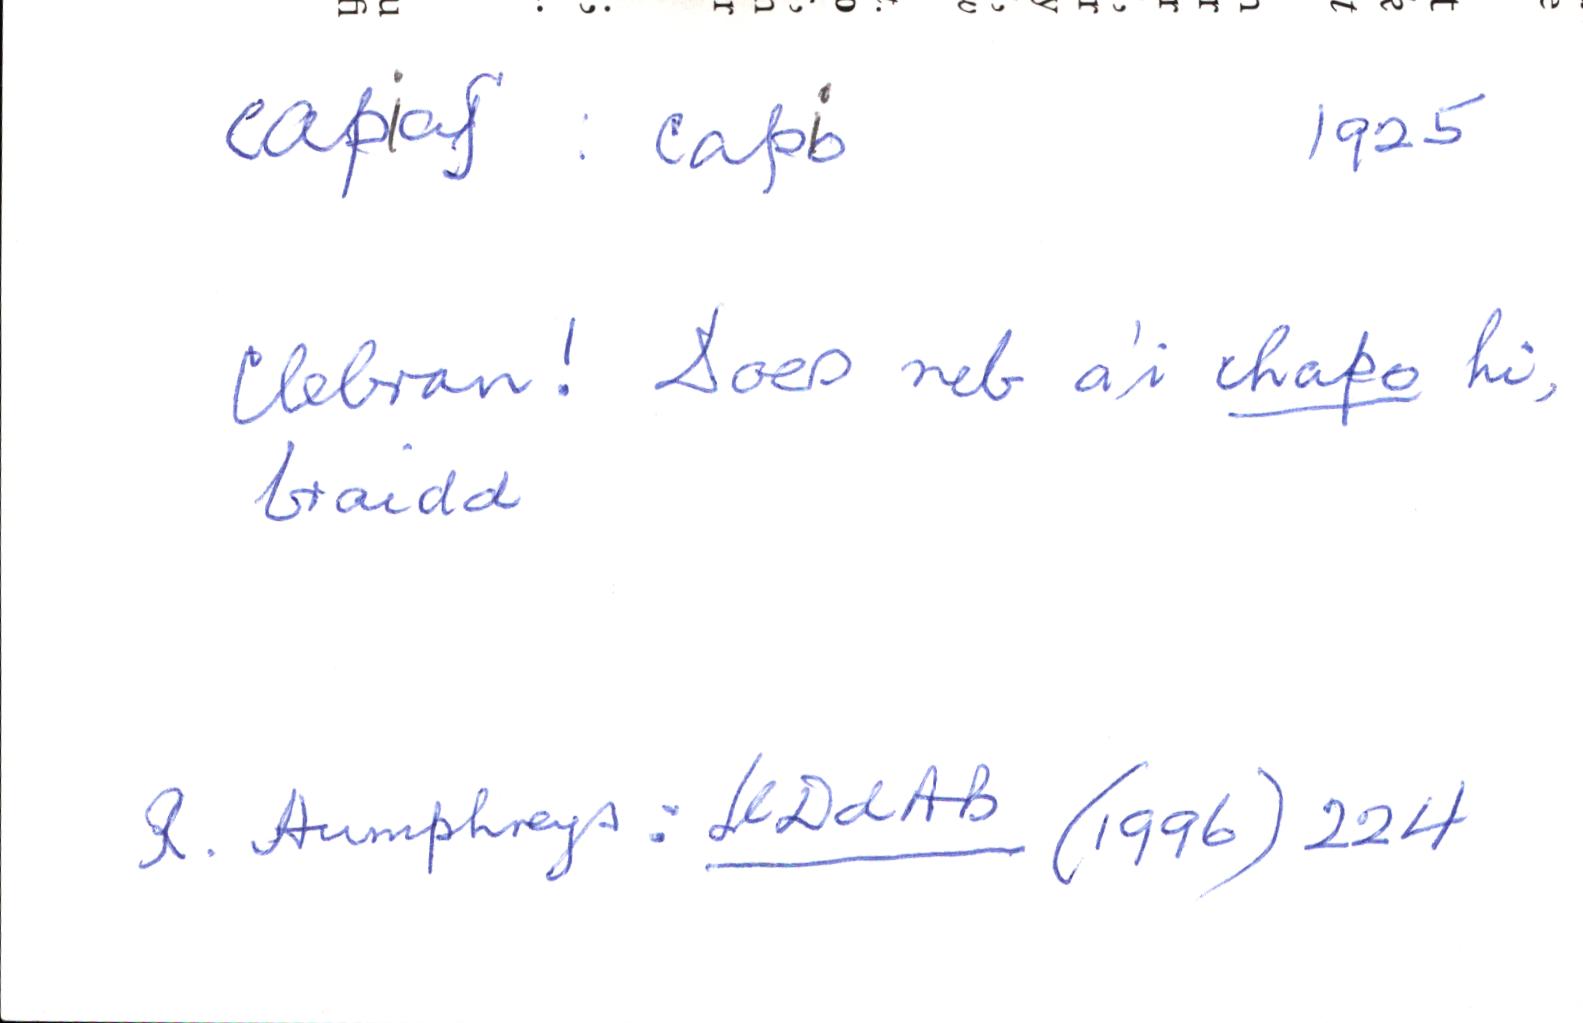 capiaf : capio 1925
Clebran! Does neb a'i chapo hi,
braidd
R. Humphreys : LlDdAB (1996) 224